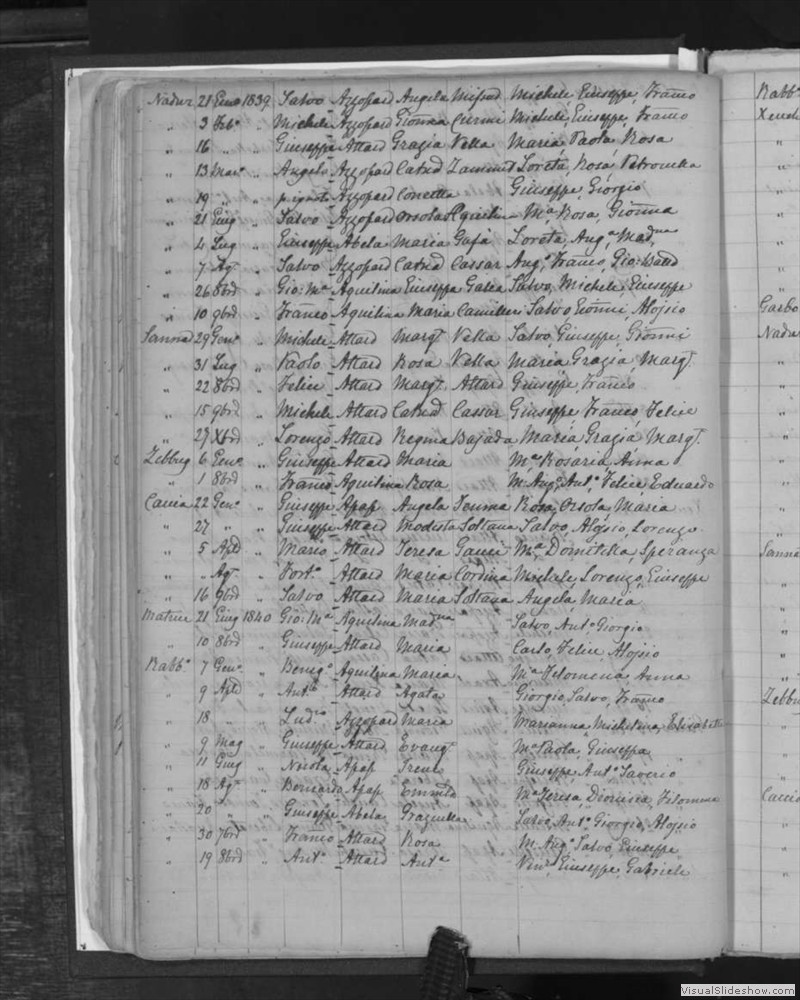 Nadur 21 Genº 1839 Salvo Azzopard Angela Mifsud Michele, Giuseppe, Franco
" 3 Febº " Michele Azzopard Gionna Curmi Michele, Giuseppe, Franco
" 16 " " Giuseppe Attard Grazia Vella Maria, Paola, Rosa
" 13 Marº " Angelo Azzopard Catnd Zammit Loreta, Rosa, Petronilla
" 19 " " Azzopard Concetta Giuseppe, Giorgio
" 21 Giug " Salvo Azzopard Orsola Aquilina Mª Rosa, Gionna
" 4 Lug " Giuseppe Abela Maria Gafà Loreta, Angª, Madna
" 7 Agº " Salvo Azzopard Catnd Cassar Angº, Franco, Gio:
" 26 8brd " Gio: Mª Aquilina Giuseppa Galea Salvo, Michele, Giuseppe
" 10 9brd " Franco Aquilina Maria Camilleri Salvo, Gionni, Alojsio
Sannat 29 Genº " Michele Attard Margt Vella Salvo, Giuseppe, Gionni
" 31 Lug " Paolo Attard Rosa Vella Maria, Grazia, Margt
" 22 8brd " Felice Attard Margt Attard Giuseppe, Franco
" 15 9brd " Michele Attard Catnd Cassar Giuseppe, Franco, Felice
" 27 Xbrd " Lorenzo Attard Regina Bajada Maria, Grazia, Margt
Zebbug 6 Genº " Giuseppe Attard Maria Mª Rosaria, Anna
" 1 8brd " Franco Aquilina Rosa M. Angº, Antº, Felice, Eduardo
Caccia 22 Genº " Giuseppe Apap Angela Teuma Rosa, Orsola, Maria
" 27 " " Giuseppe Attard Modesta Soltana Salvo, Alojsio, Lorenzo
" 5 Aple " Mario Attard Teresa Gauci Mª Domitilla, Speranza
" " Agº " Fortº Attard Maria Cordina Michele, Lorenzo, Giuseppe
" 16 9brd " Salvo Attard Maria Soltana Angela, Maria
Matrice 21 Giug 1840 Gio: Mª Aquilina Madna Salvo, Antº, Giorgio
" 10 8brd " Giuseppe Attard Maria Carlo, Felice, Alojsio
Rabbº 7 Genº " Benegº Aquilina Maria Mª Filomena, Anna
" 9 Aple " Antº Attard Agata Giorgio, Salvo, Franco
" 18 " " Ludº Azzopard Maria Marianna, Michelina, Elisabetta
" 9 Mag " Giuseppe Attard Evangt Mª Paola, Giuseppa
" 11 Giug " Nicola Apap Irene Giuseppe, Antº, Saverio
" 18 Agº " Bernardo Apap Mª Teresa, Dionisia, Filomena
" 20 " " Giuseppe Abela Graziulla Salvo, Antº, Giorgio, Alojsio
" 30 7brd " Franco Attard Rosa M. Angº, Salvo, Giuseppe
" 19 8brd " Antº Attard Antª Vinº, Giuseppe, Gabriele
Rabbº
Garbo
Nadur
Sanna
Zebbu
VisualSlideshow.com